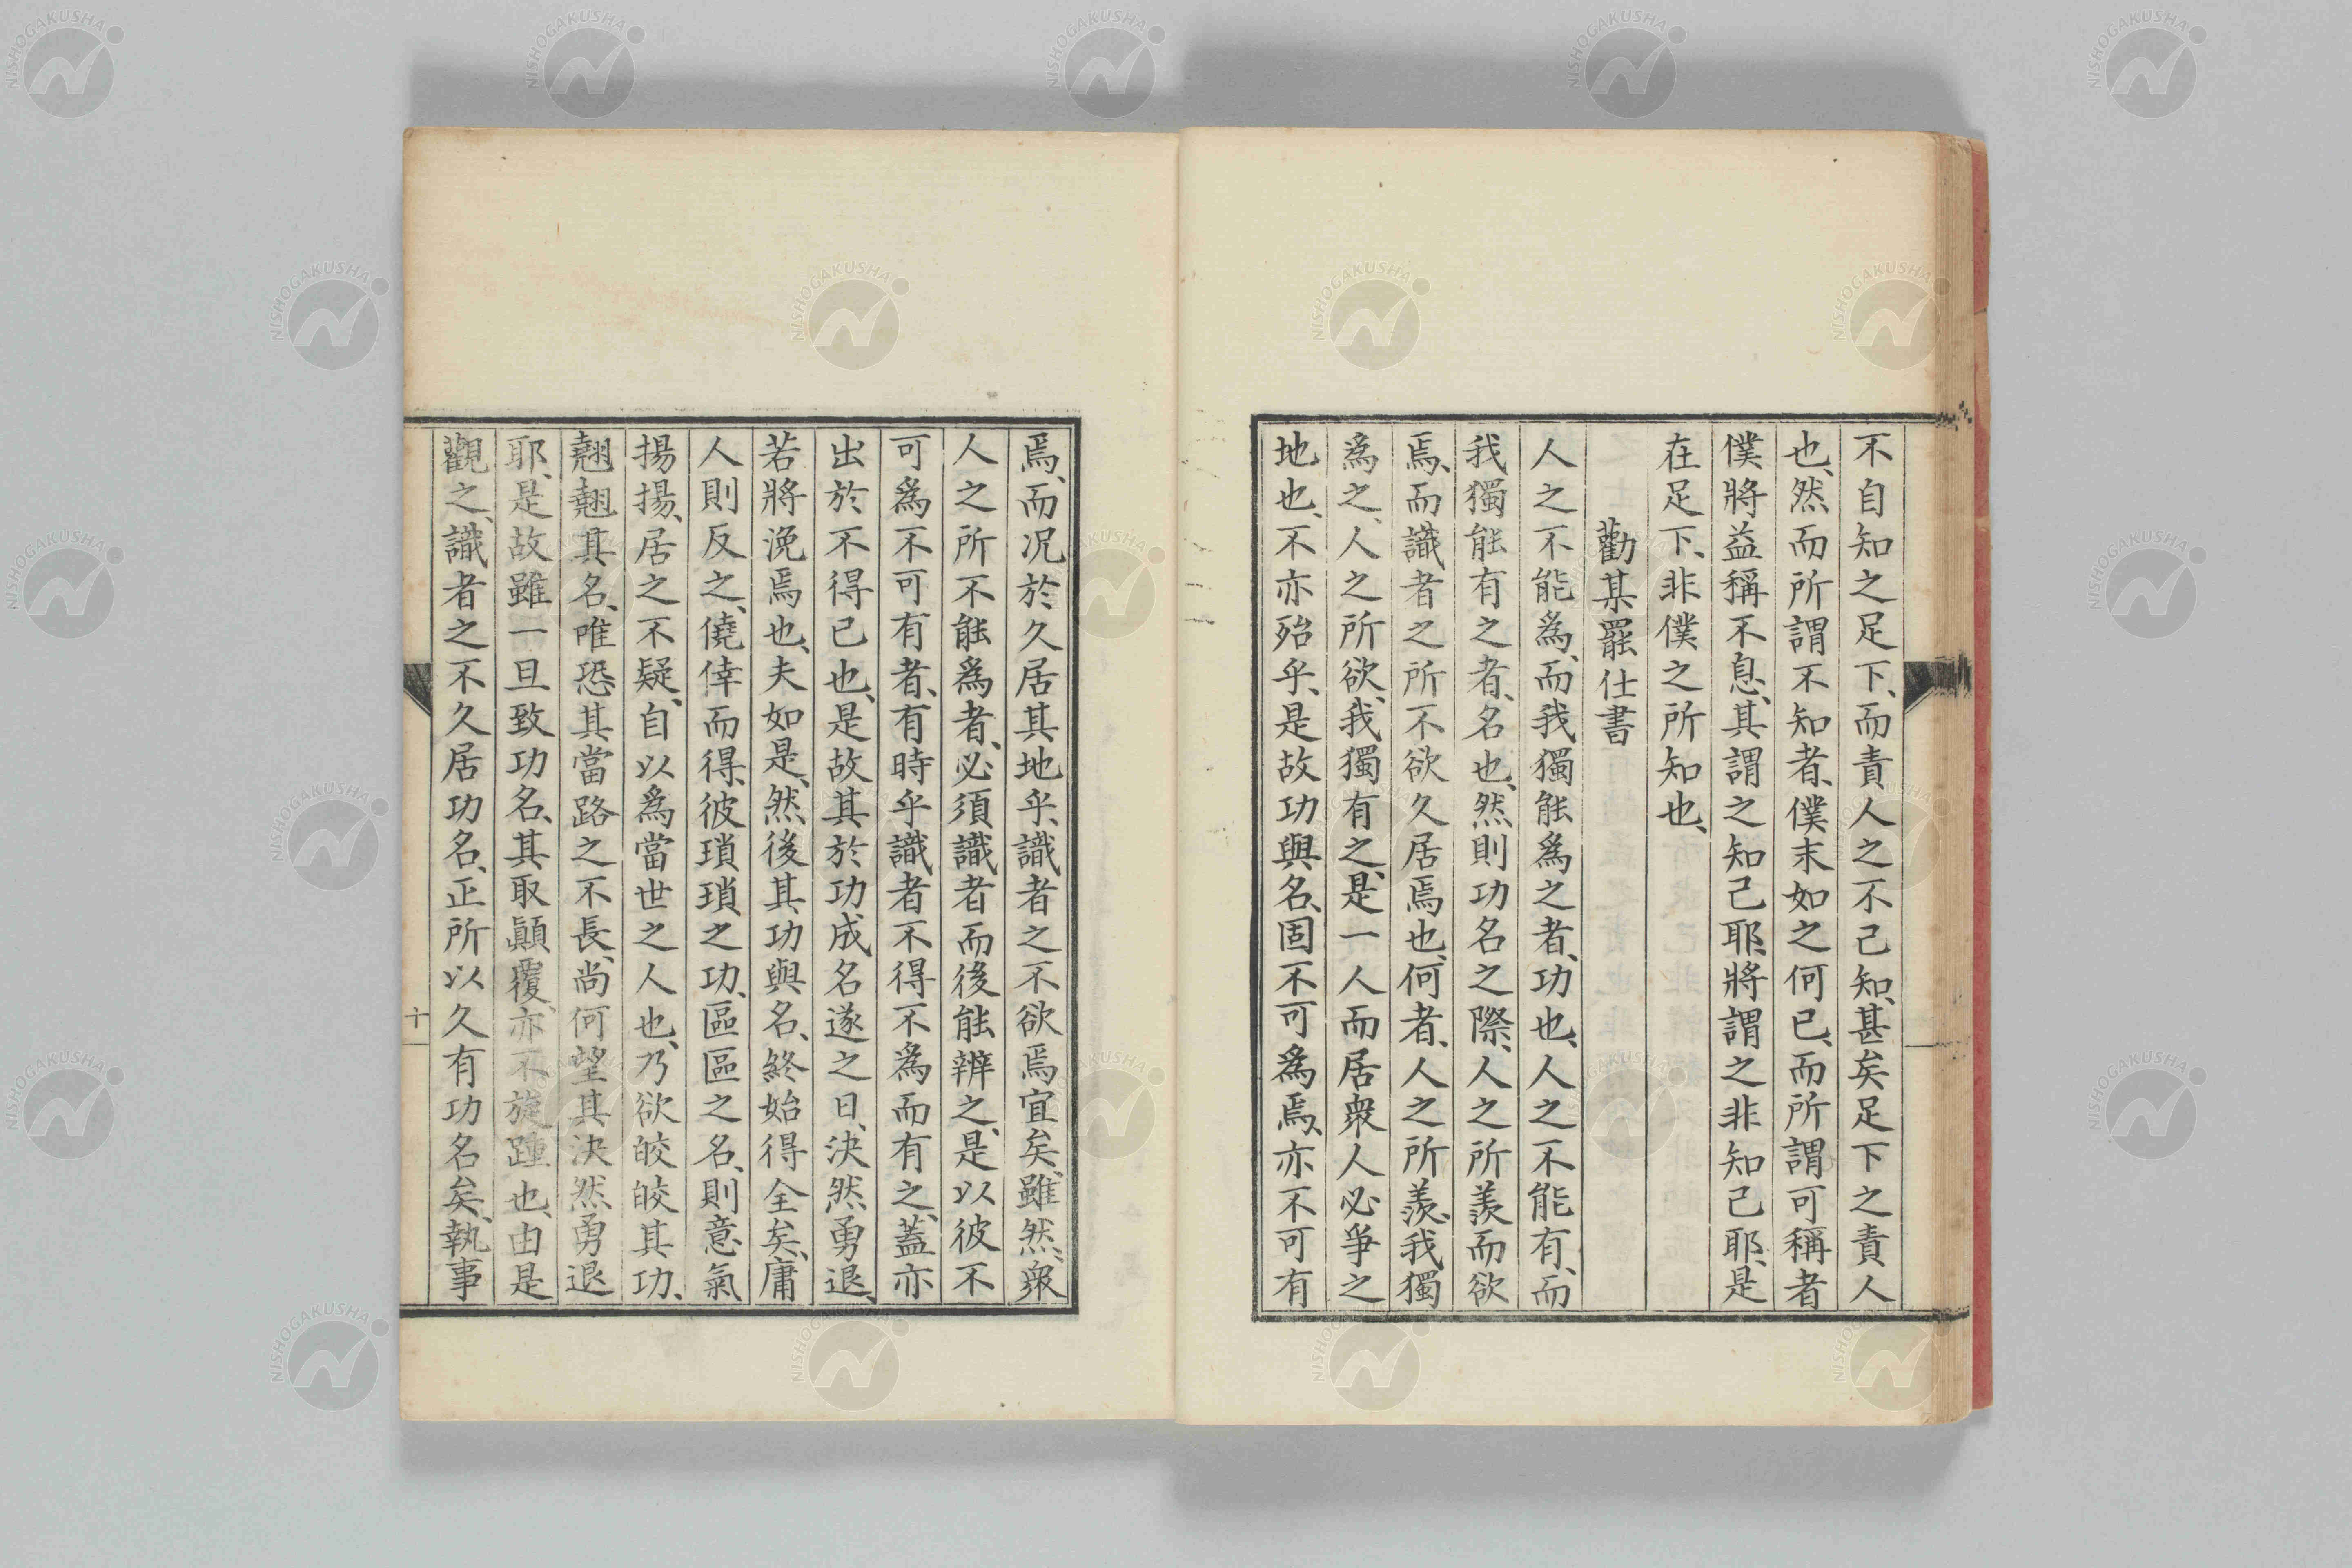 不自知之足下、而責人之不己知、甚矣足下之責人
也、然而所謂不知者、僕末如之何已、而所謂可稱者
僕將益稱不息、其謂之知己耶、將謂之非知己耶、是
在足下、非僕之所知也、
勸某罷仕書
人之不能爲、而我獨能爲之者、功也、人之不能有、而
我獨能有之者、名也、然則功名之際、人之所羨而欲
焉、而識者之所不欲久居焉也、何者、人之所羨、我獨
爲之、人之所欲、我獨有之、是一人而居衆人必爭之
地也、不亦殆乎、是故功與名、固不可爲焉、亦不可有
焉、而況於久居其地乎、識者之不欲焉宜矣、雖然、衆
人之所不能爲者、必須識者而後能辨之、是以彼不
可爲不可有者、有時乎識者不得不爲而有之、蓋亦
出於不得已也、是故其於功成名遂之日、決然勇退、
若將浼焉也、夫如是、然後其功與名、終始得全矣、庸
人則反之、僥倖而得、彼瑣瑣之功、區區之名、則意氣
揚揚、居之不疑、自以爲當世之人也、乃欲皎皎其功、
翹翹其名、唯恐其當路之不長、尚何望其決然勇退
耶、是故雖一旦致功名、其取顚覆、亦不旋踵也、由是
觀之、識者之不久居功名、正所以久有功名矣、執事
十一
NISHOGAKUSHA